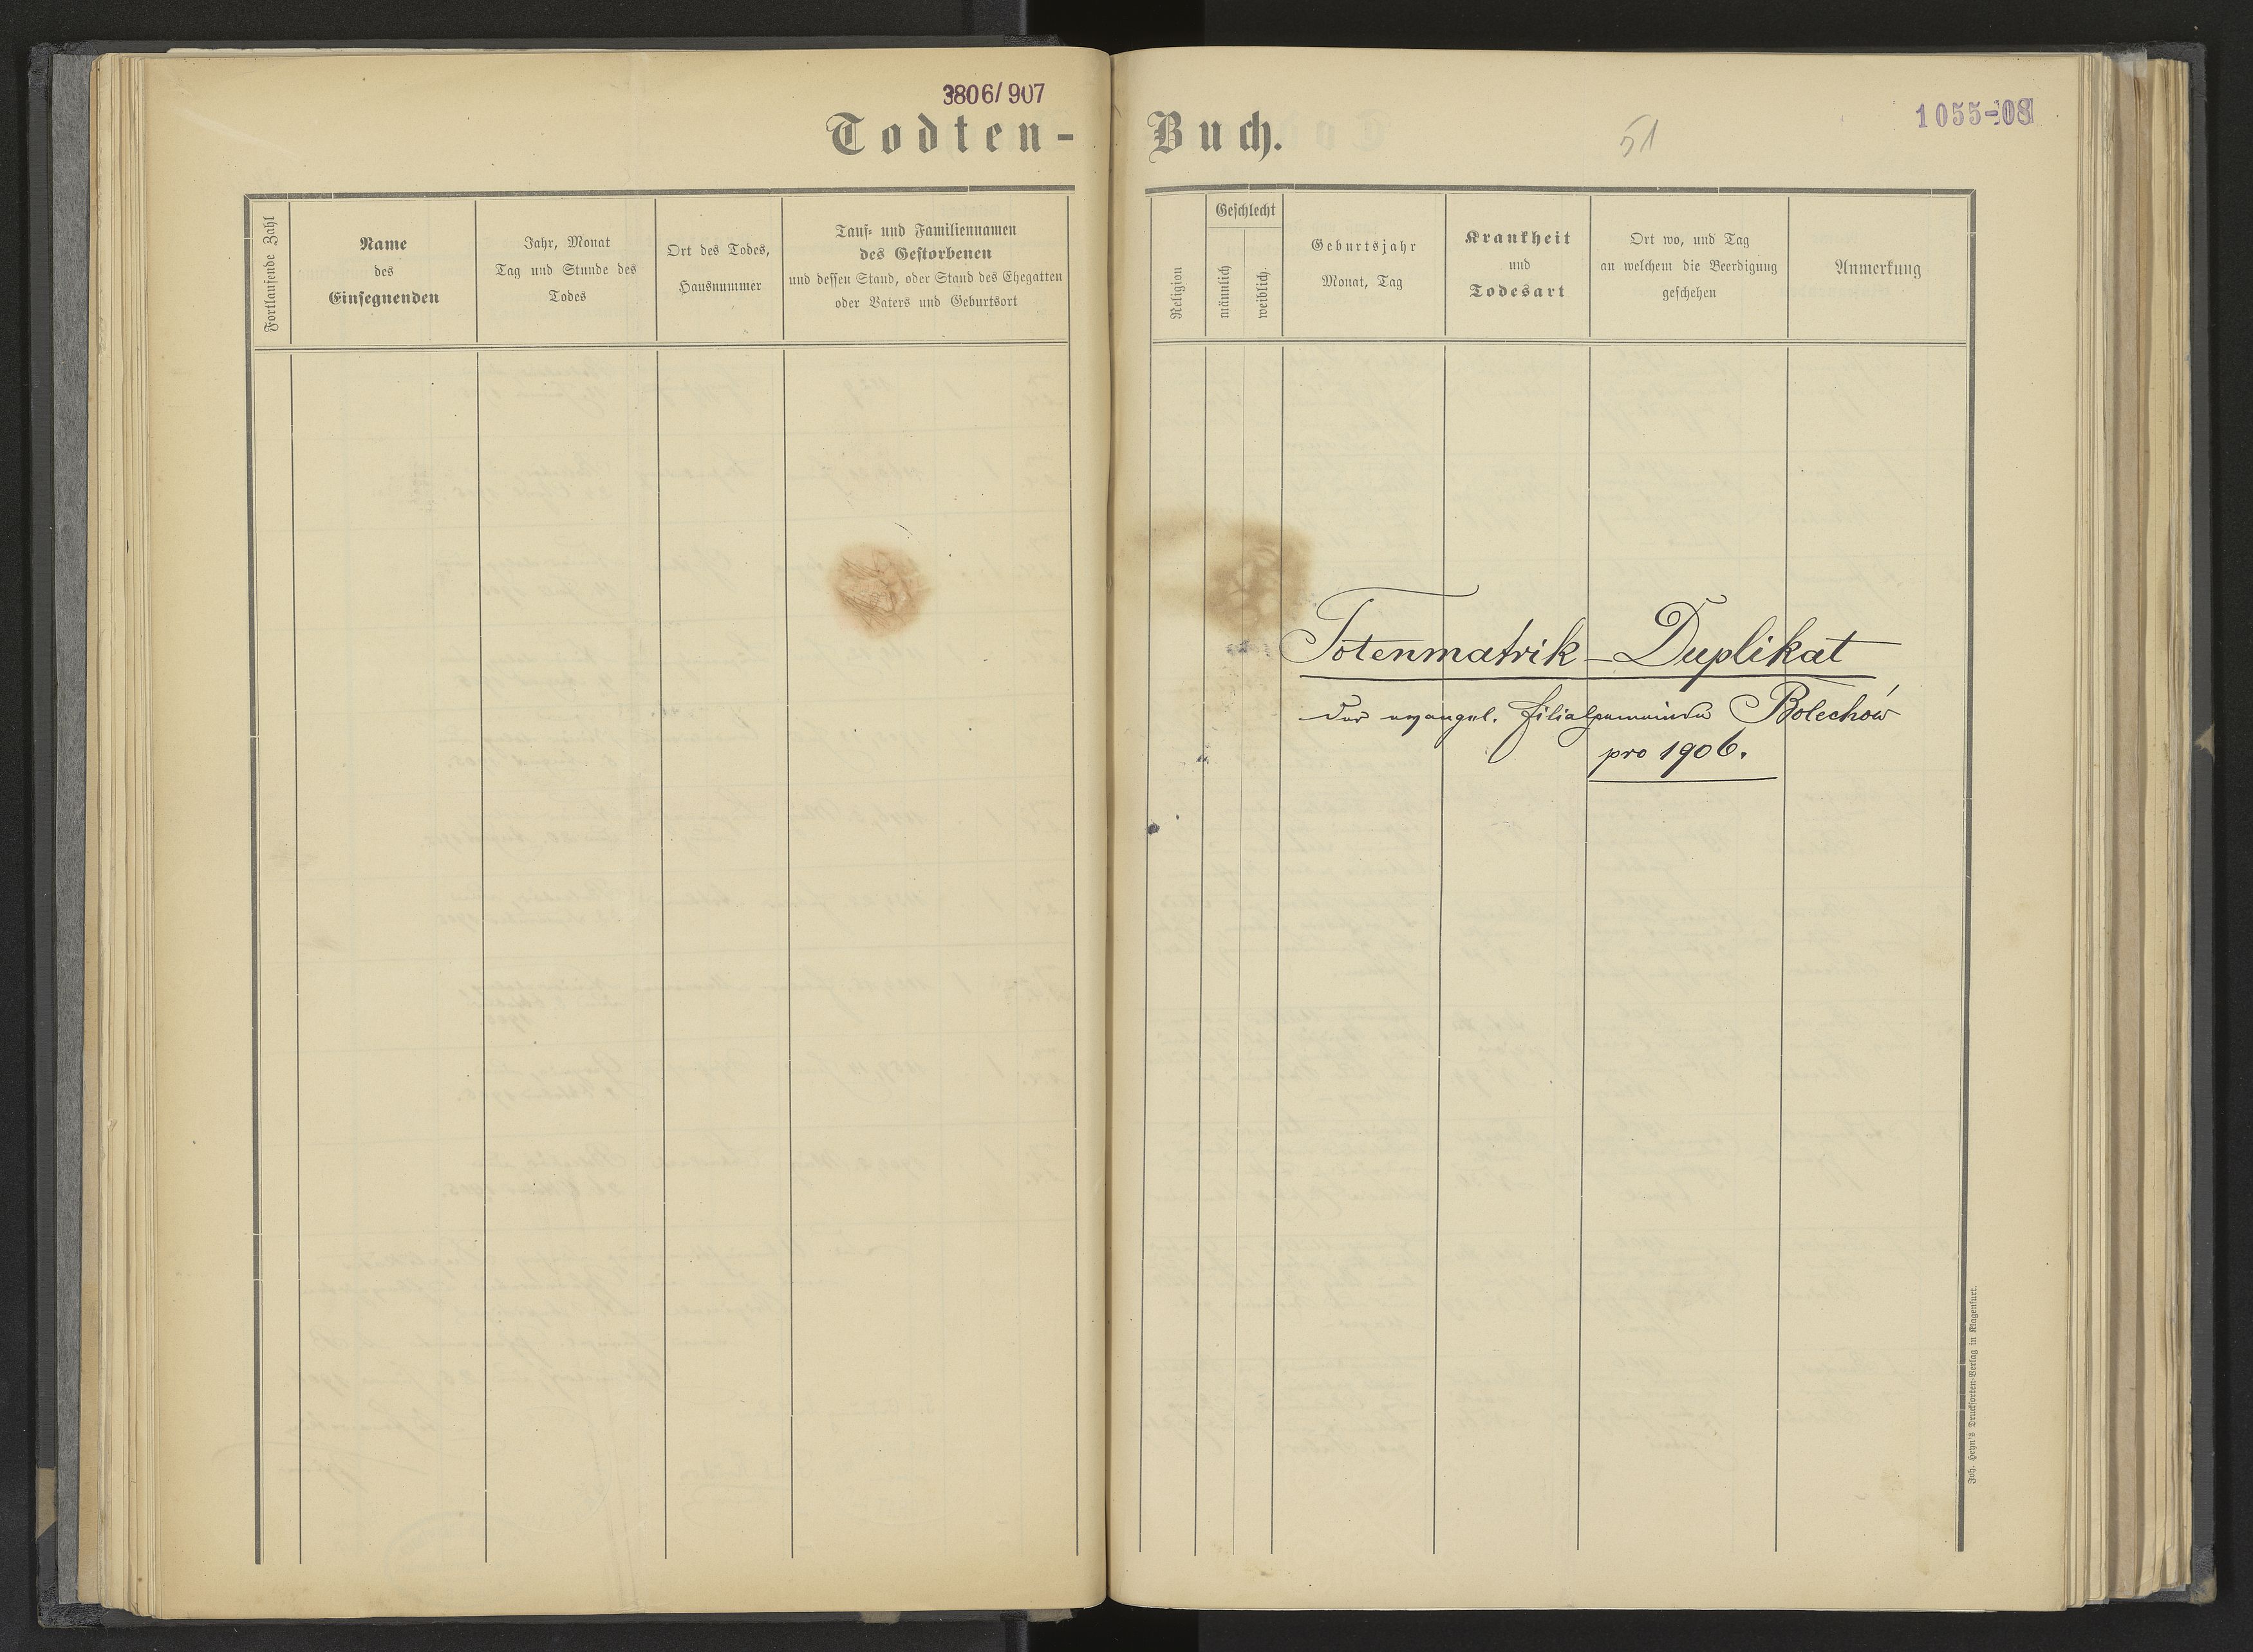 3806/907
Todten-
Fortlaufende Zahl
Name
des
Einsegnenden
Jahr, Monat
Tag und Stunde des
Todes
Ort des Todes,
Hausnummer
Tauf- und Familiennamen
des Gestorbenen
und dessen Stand, oder Stand des Ehegatten
oder Vaters und Geburtsort
Buch.
51
1055-08
Religion
Geschlecht
männlich
weiblich.
Geburtsjahr
Monat, Tag
Krankheit
und
Todesart
Ort wo, und Tag
an welchem die Beerdigung
geschehen
Anmerkung
Totenmatrik-Duplikat
der evangel. Filialgemeinde Bolechów
pro 1906.
Joh. Heyn's Drucksorten-Verlag in Klagenfurt.